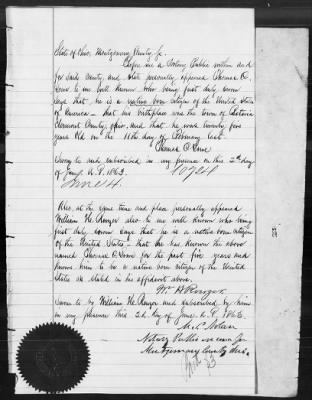 State of Ohio, Montgomery County, Ss.
Before me a Notary Public within and
for said County, and State personally appeared Thomas C.
to me well known who being first duly sworn
says that he is a native born citizen of the United States
of America – that his birthplace was the town of Batavia
Clermont County, Ohio, and that he was twenty five
years old on the 18th day of February last.
Thomas C
Sworn to and subscribed in my presence on this 2nd day
of June A.D. 1863.
10724
June 4.
Also, at the same time and place personally appeared
William H. also to me well known who being
first duly sworn says that he is a native born citizen
of the United States – that he has known the above
named Thomas C for the past five years and
knows him to be a native born citizen of the United
States as stated in his affidavit above.
Wm H
Sworn to by William H. and subscribed by him
in my presence this 2d. day of June A.D. 1863.
Notary Public in and for
Montgomery County Ohio